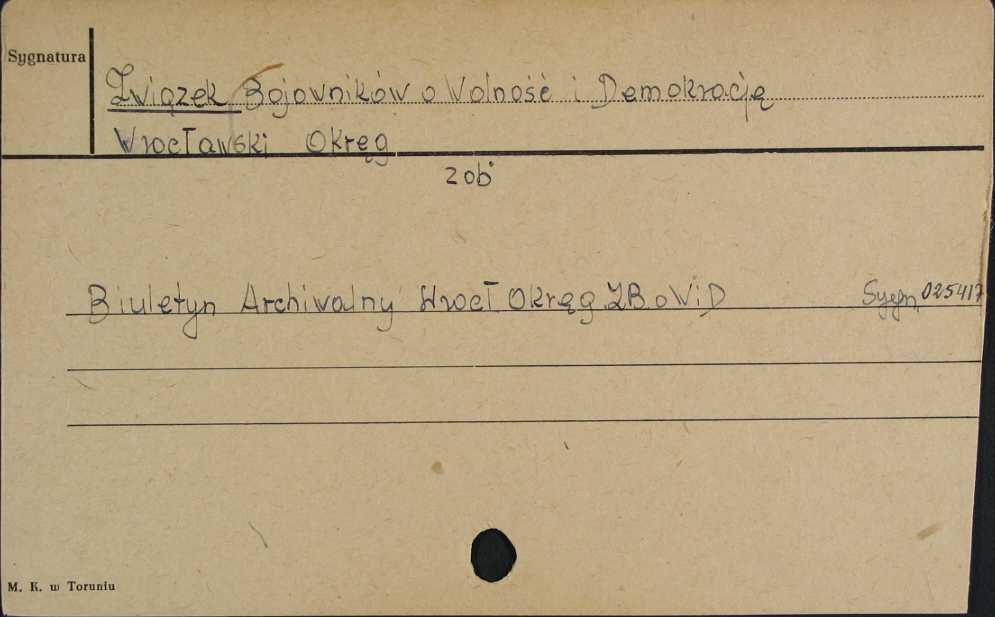 Sygnatura
Związek Bojowników o Wolność i Demokrację
Wrocławski Okręg
zob.
Biuletyn Archiwalny Wrocł Okręg ZB.oWiD Sygn 025417
M. K. w Toruniu